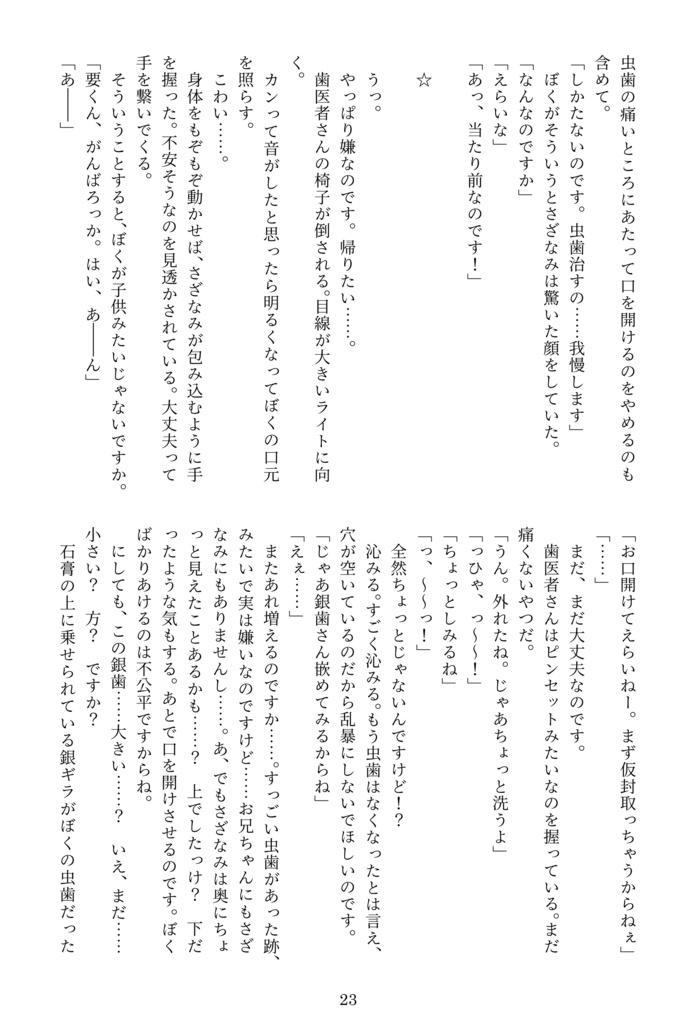 虫歯の痛いところにあたって口を開けるのをやめるのも
含めて。
「しかたないのです。虫歯治すの……我慢します」
ぼくがそういうとさざなみは驚いた顔をしていた。
「なんなのですか」
「えらいな」
「あっ、当たり前なのです！」
☆
うっ。
やっぱり嫌なのです。帰りたい……。
歯医者さんの椅子が倒される。目線が大きいライトに向
く。
カンって音がしたと思ったら明るくなってぼくの口元
を照らす。
こわい……。
身体をもぞもぞ動かせば、さざなみが包み込むように手
を握った。不安そうなのを見透かされている。大丈夫って
手を繋いでくる。
そういうことすると、ぼくが子供みたいじゃないですか。
「要くん、がんばろっか。はい、あ――ん」
「あ――」
「お口開けてえらいねー。まず仮封取っちゃうからねぇ」
「……」
まだ、まだ大丈夫なのです。
歯医者さんはピンセットみたいなのを握っている。まだ
痛くないやつだ。
「うん。外れたね。じゃあちょっと洗うよ」
「っひゃ、っ～～！」
「ちょっとしみるね」
「っ、～～っ！」
全然ちょっとじゃないんですけど！？
沁みる。すごく沁みる。もう虫歯はなくなったとは言え、
穴が空いているのだから乱暴にしないでほしいのです。
「じゃあ銀歯さん嵌めてみるからね」
「えぇ……」
またあれ増えるのですか……。すっごい虫歯があった跡、
みたいで実は嫌いなのですけど……お兄ちゃんにもさざ
なみにもありませんし……。あ、でもさざなみは奥にちょ
っと見えたことあるかも……？　上でしたっけ？　下だ
ったような気もする。あとで口を開けさせるのです。ぼく
ばかりあけるのは不公平ですからね。
にしても、この銀歯……大きい……？　いえ、まだ……
小さい？　方？　ですか？
石膏の上に乗せられている銀ギラがぼくの虫歯だった
23